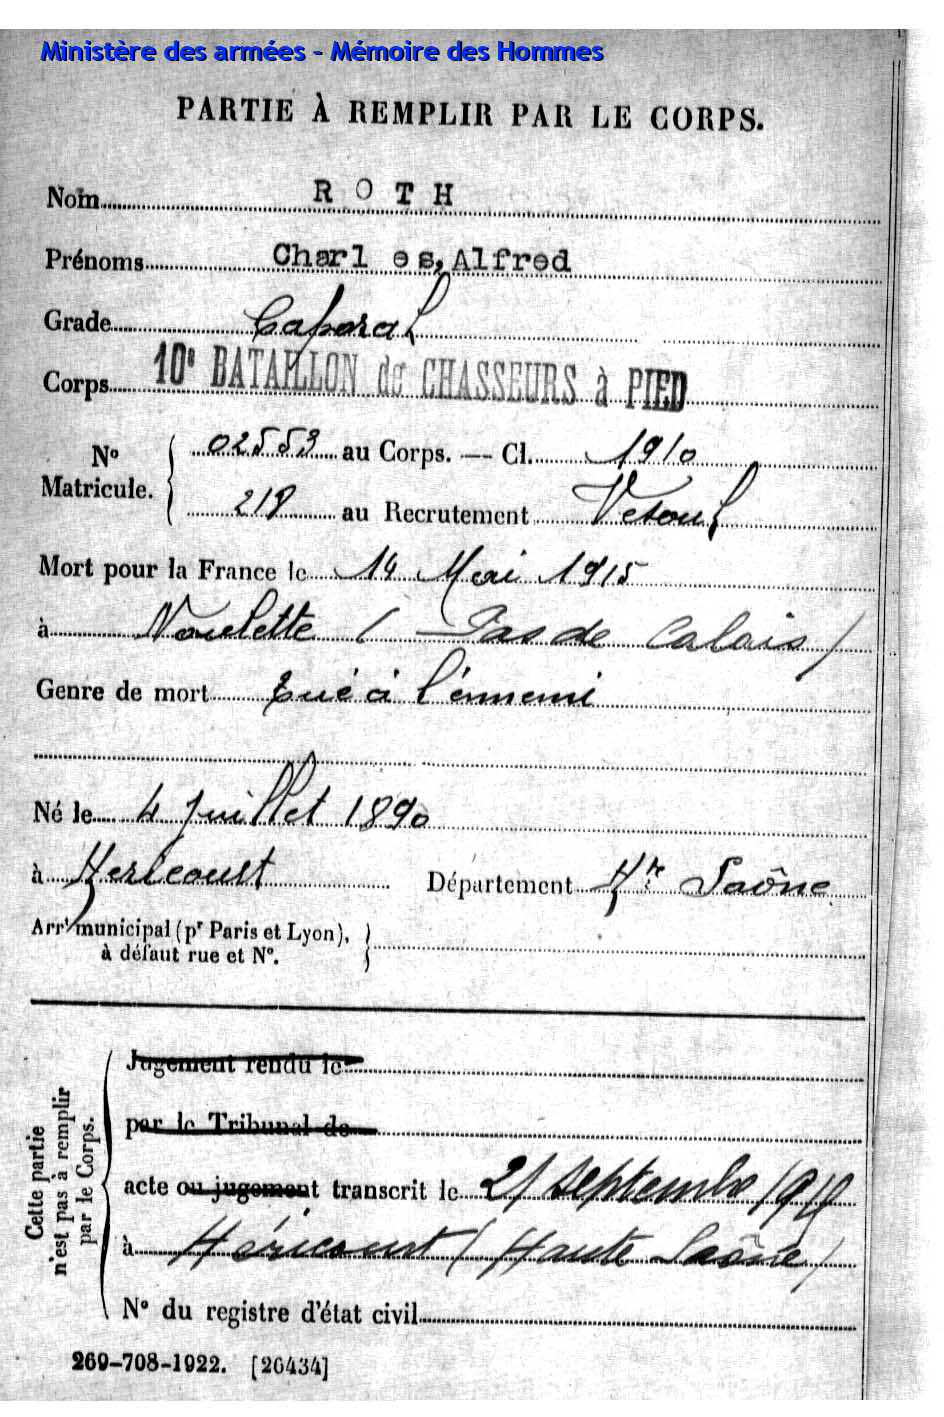 Ministère des armées - Mémoire des Hommes
PARTIE À REMPLIR PAR LE CORPS.
Nom ROTH
Prénoms Charles, Alfred
Grade Caporal
Corps 10e BATAILLON de CHASSEURS à PIED
No Matricule. 02553 au Corps. — Cl. 1910
218 au Recrutement Vesoul
Mort pour la France le 14 Mai 1915
à Noulette (Pas de Calais)
Genre de mort tué à l'ennemi
Né le 4 Juillet 1890
à Hericourt Département Hte Saône
Arrt municipal (pr Paris et Lyon),
à défaut rue et No.
Cette partie
n'est pas à remplir
par le Corps.
Jugement rendu le
par le Tribunal de
acte ou jugement transcrit le 21 septembre
à Héricourt (Haute Saône)
No du registre d'état civil
269-708-1922. [26434]